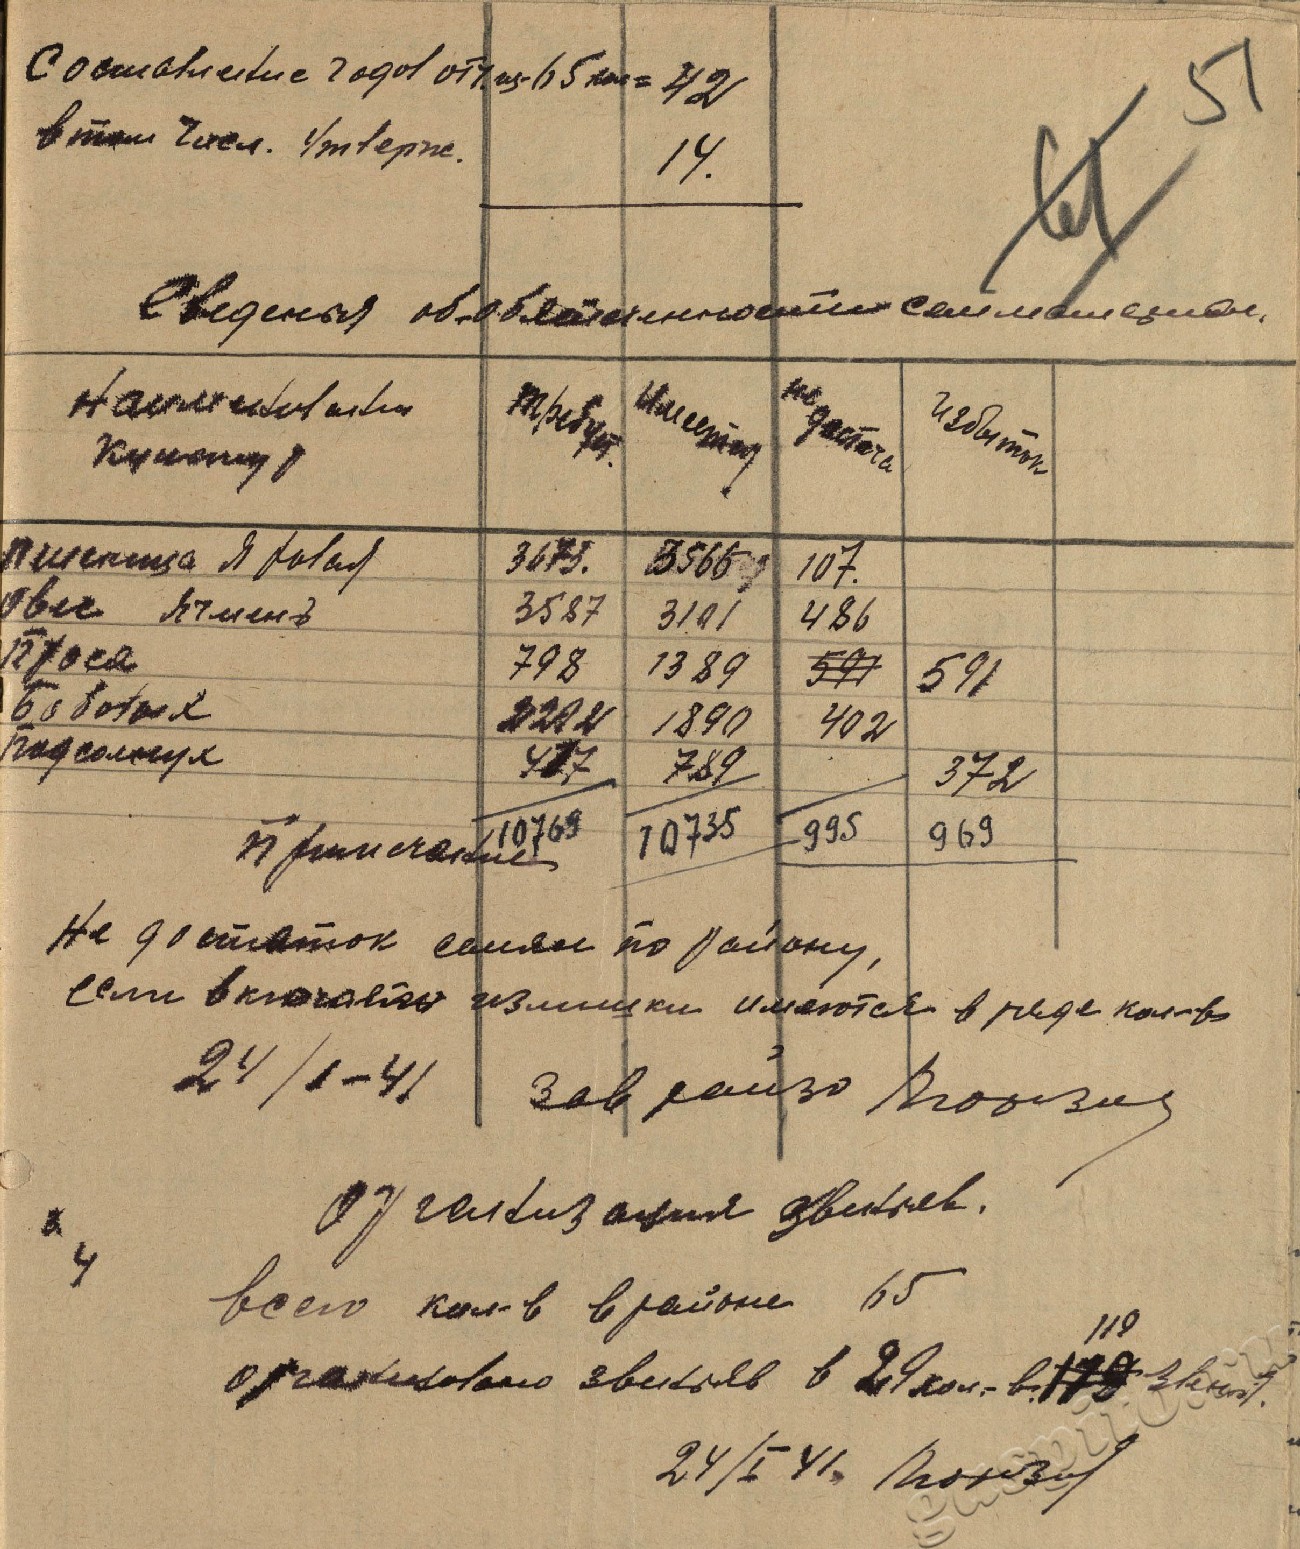 51
Составление годов отч. из 65 кол = 42
в том числ. утверж. 14.
Сведения об обеспеченности семматериал.
Наименование культур Требует. Имеется недостача Избыток
Пшеница Яровая 3673. 3566 107.
Овес Ячмень 3587 3101 486
Проса 798 1389 591 591
Бобовых 2292 1890 402
Подсолнух 417 789 372
10769 10735 995 969
Примечание
Не достаток семян по району,
если включать излишки имеются в ряде кол-в
24/I-41 Зав райзо
Организация звеньев.
4
всего кол-в в районе 65
119
организовано звеньев в 29 кол-в. 179 звеньев.
24/I 41.
gaspito.ru